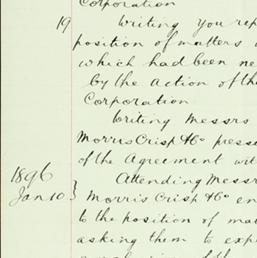 Corporation
19 Writing you rep
position of matters
which had been ne
by the action of the
Corporation
Writing Messrs
Morris Crisp & Co presse
of the Agreement wit
1896 Attending Messr
Jan 10 } Morris Crisp & Co en
to the position of mat
asking them to exp